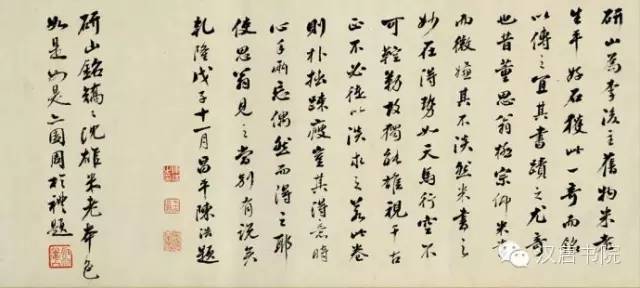 研山為李後主舊物米老
生平好石獲此一奇而銘
以傳之宜其書蹟之尤奇
也昔董思翁極宗仰米書
而微嫌其不淡然米書之
妙在得勢如天馬行空不
可鞚勒故獨能雄視千古
正不必徒以淡求之若此卷
則朴拙疎瘦豈其得意時
心手兩忘偶然而得之耶
使思翁見之當別有說矣
乾隆戊子十一月昌平陳浩題
研山銘鎬〻沈雄米老本色
如是如是亦園周於禮題
汉唐书院